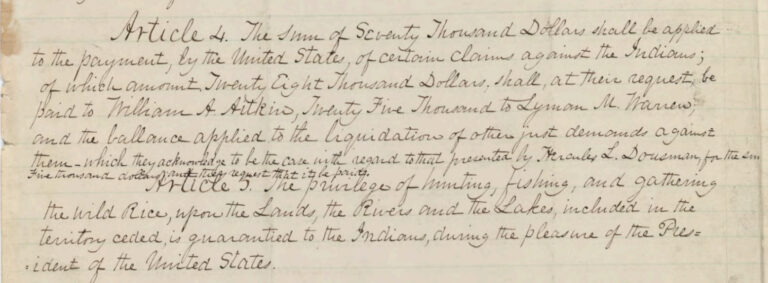 Article 4. The sum of Seventy Thousand Dollars shall be applied
to the payment, by the United States, of certain claims against the Indians;
of which amount, Twenty Eight Thousand Dollars, shall, at their request, be
paid to William A. Aitkin, Twenty Five Thousand to Lyman M. Warren,
and the ballance applied to the liquidation of other just demands against
them - which they acknowledge to be the case with regard to that presented by Hercules L. Dousman, for the sum
Five thousand dollars and they request that it be paid.
Article 5. The privilege of hunting, fishing, and gathering
the wild Rice, upon the Lands, the Rivers and the Lakes, included in the
territory ceded, is guarantied to the Indians, during the pleasure of the Pres=
=ident of the United States.